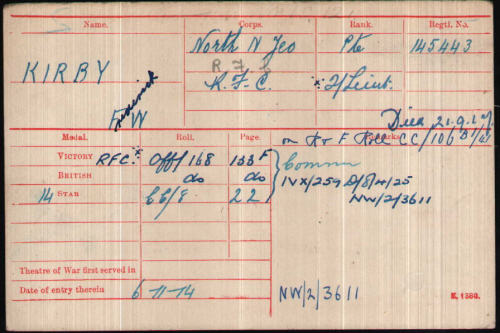 Name. Corps. Rank. Regtl. No.
KIRBY North N Yeo Pte 145443
R.F.C.
R.F.C. * 2/Lieut.
FW
Died 21.9.17
on Kr F Roll CC/106
Medal. Roll. Page. Remarks.
VICTORY RFC * Off/168 153F
BRITISH do do
14 STAR CC/E 221
IVX/259 D/8/4/25
NW/2/3611
Theatre of War first served in
Date of entry therein 6-11-14
NW/2/3611
K. 1380.